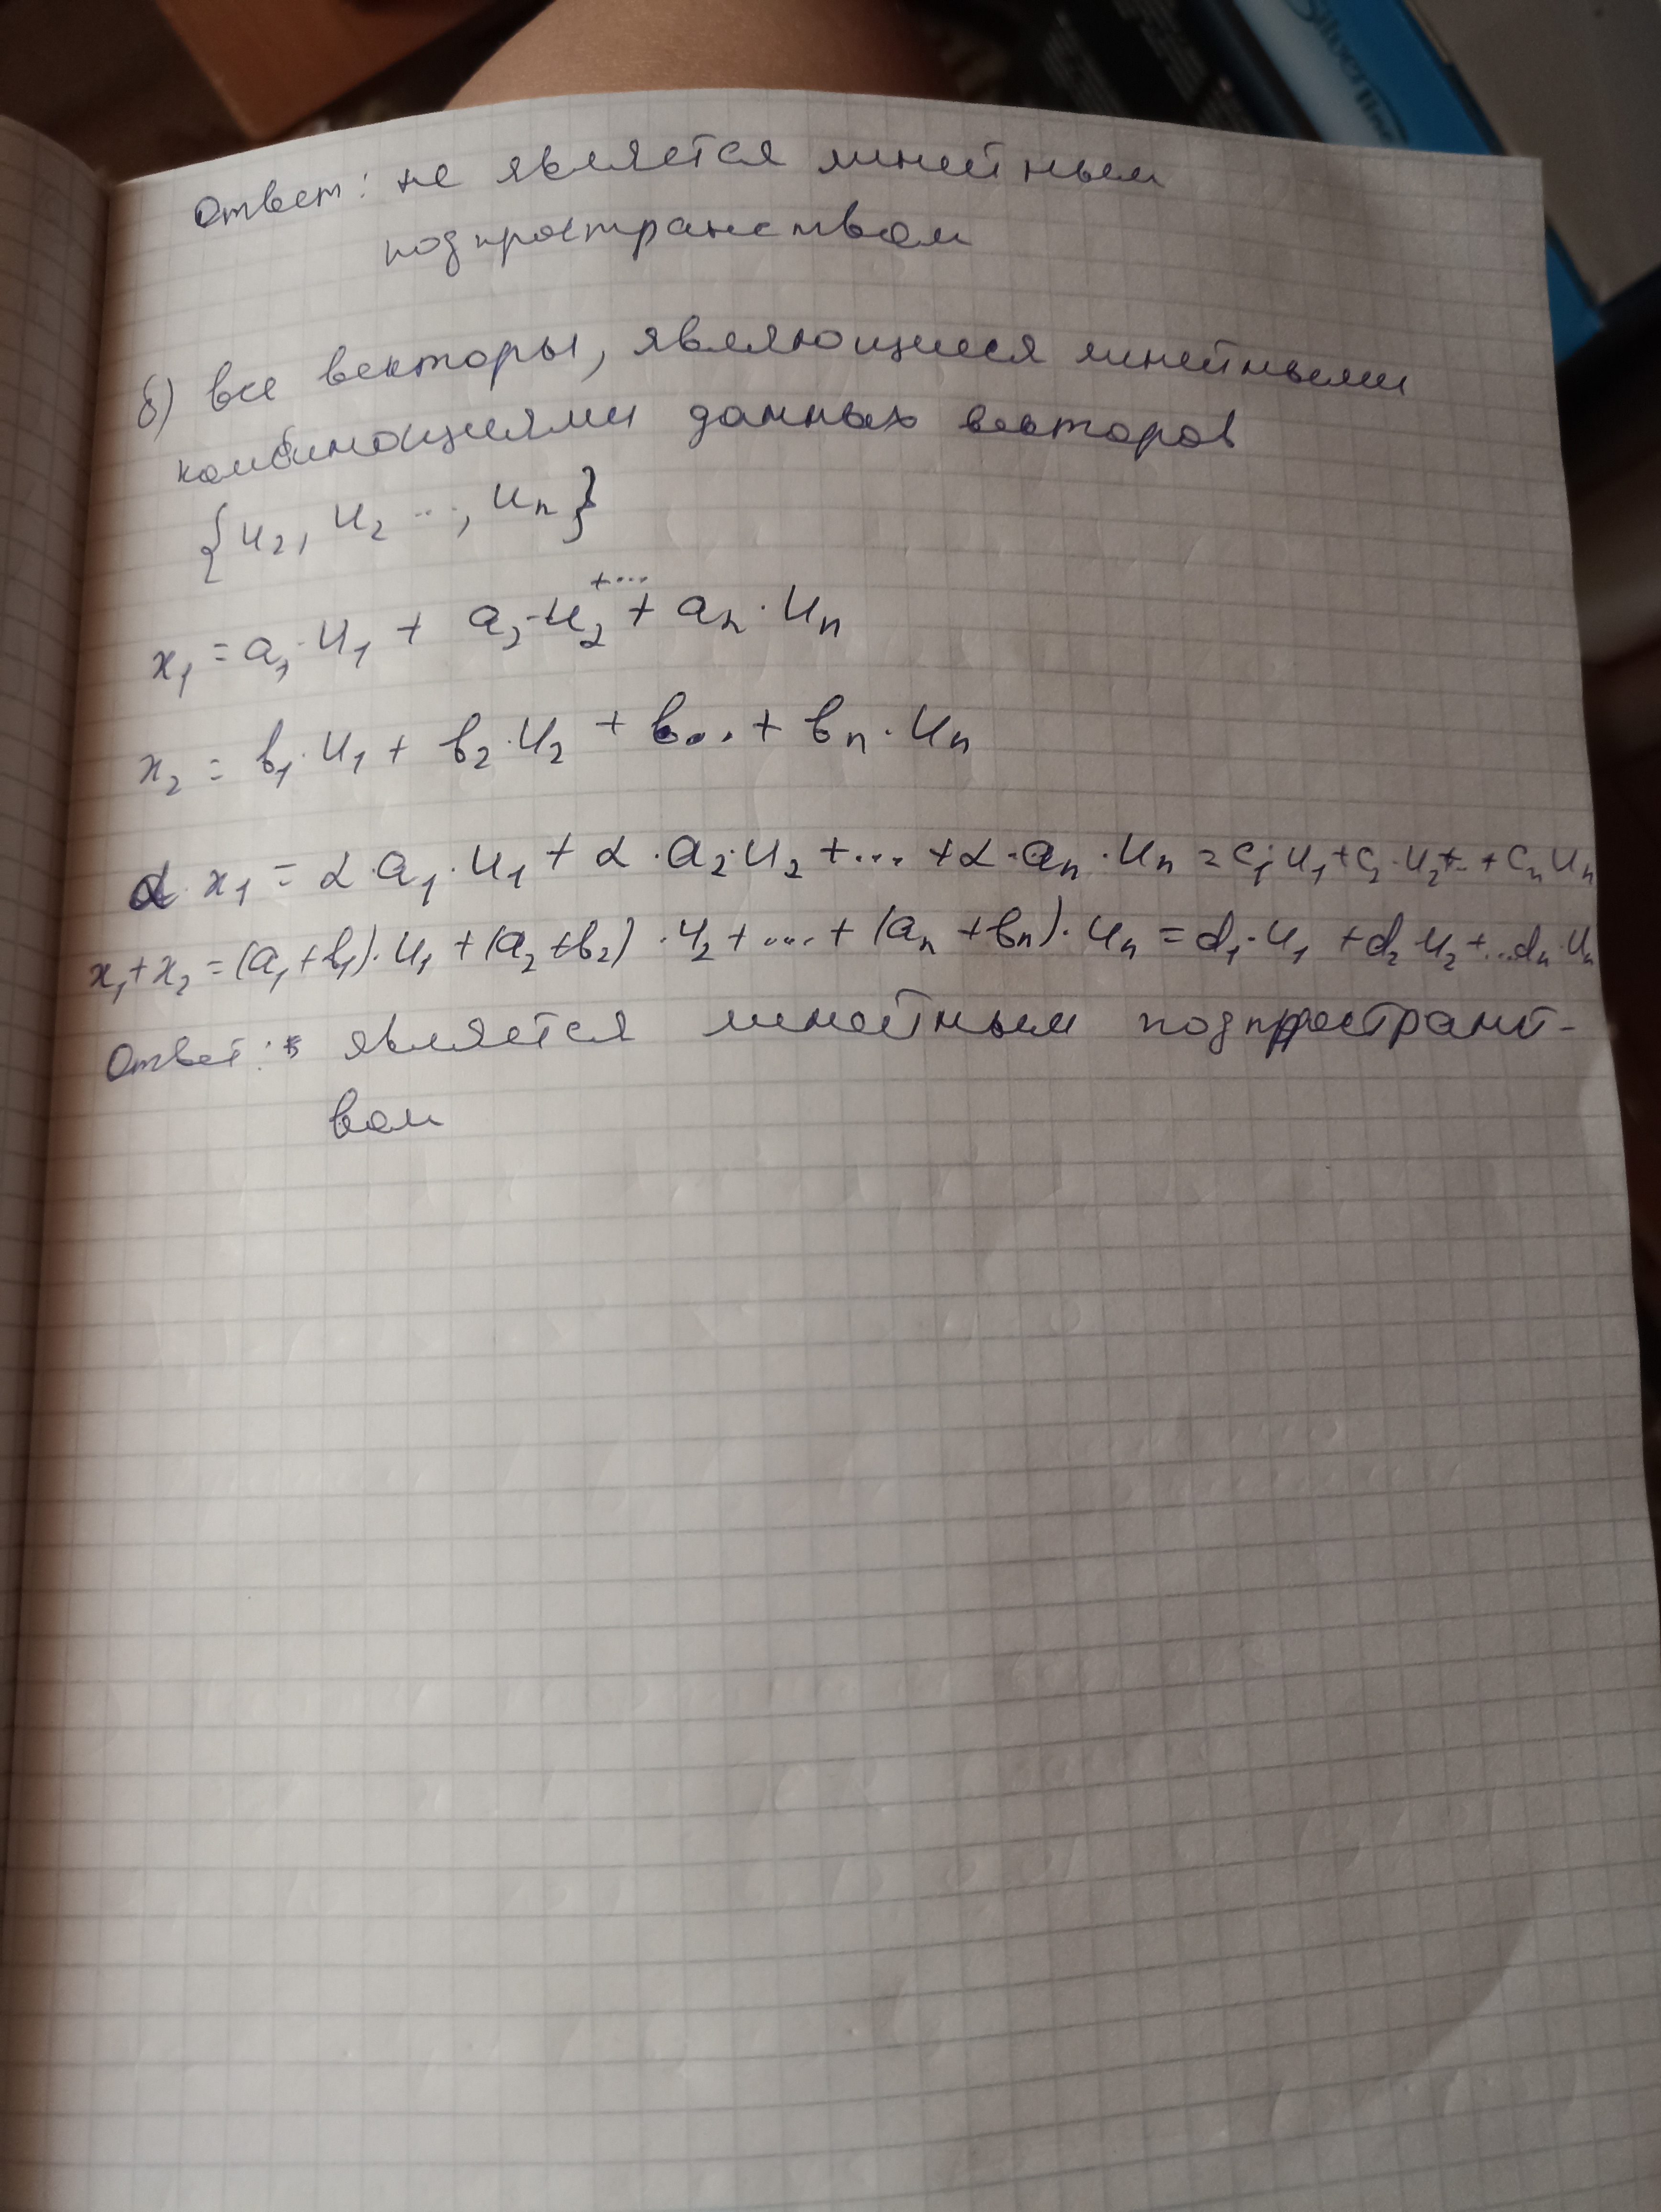 Silverline
Ответ: не является линейным
подпространством
б) все векторы, являющиеся линейными
комбинациями данных векторов
{u₂, u₂ ..., uₙ}
x₁ = a₁·u₁ + a₂·u₂ +... + aₙ·uₙ
x₂ = b₁·u₁ + b₂·u₂ + b... + bₙ·uₙ
α·x₁ = α·a₁·u₁ + α·a₂·u₂ +... + α·aₙ·uₙ = c₁·u₁ + c₂·u₂ +.. + cₙuₙ
x₁+x₂ = (a₁+b₁)·u₁ + (a₂+b₂)·u₂ +... + (aₙ+bₙ)·uₙ = d₁·u₁ + d₂·u₂ +...dₙ·uₙ
Ответ: является линейным подпространст-
вом